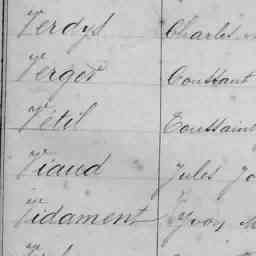 Verdys Charles
Vergos Constant
Vétil Toussaint
Viaud Jules
Vidament Yvon